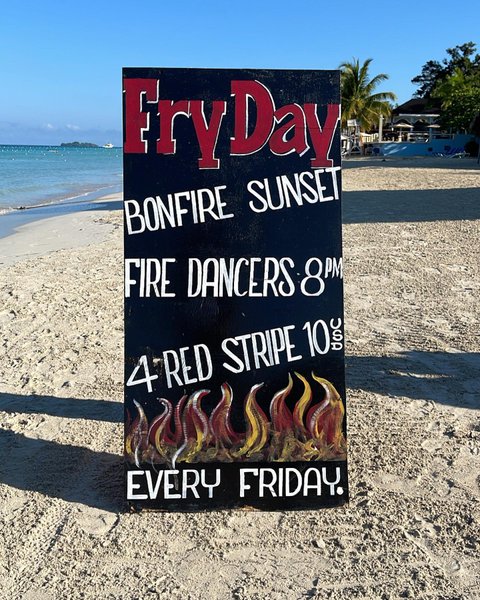 FryDay
BONFIRE SUNSET
FIRE DANCERS 8PM
4 RED STRIPE 10 USD
EVERY FRIDAY.